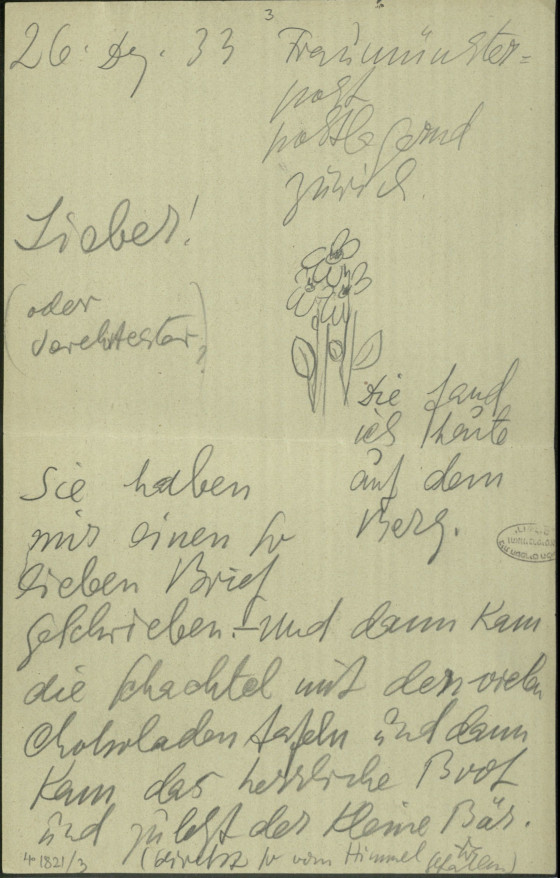 3
26. Dez. 33
Fraumünster=
post
postlagernd
Zürich.
Lieber!
(oder
Verehrtester?)
Die fand
ich heute
auf dem
Berg.
Sie haben
mir einen so
lieben Brief
geschrieben. – und dann kam
die Schachtel mit den vielen
Chokoladentafeln und dann
kam das herrliche Brot
und zuletzt der kleine Bär.
(direkt so vom Himmel
4 1821/3